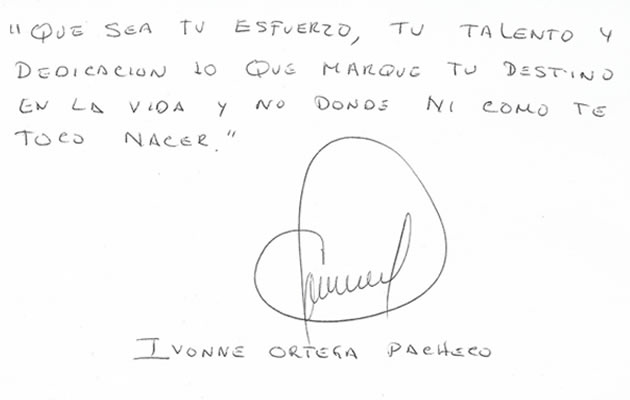 "QUE SEA TU ESFUERZO, TU TALENTO Y
DEDICACION LO QUE MARQUE TU DESTINO
EN LA VIDA Y NO DONDE NI COMO TE
TOCO NACER."
IVONNE ORTEGA PACHECO